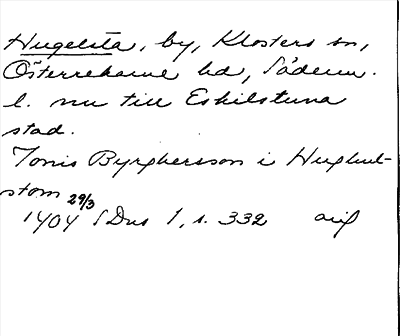 Hugelsta, by, Klosters sn,
Österrekarne hd, Söderm.
l. nu till Eskilstuna
stad.
Jonis Byrghersson i Hughul-
stom 29/3
1404 SDns 1, s. 332 orig